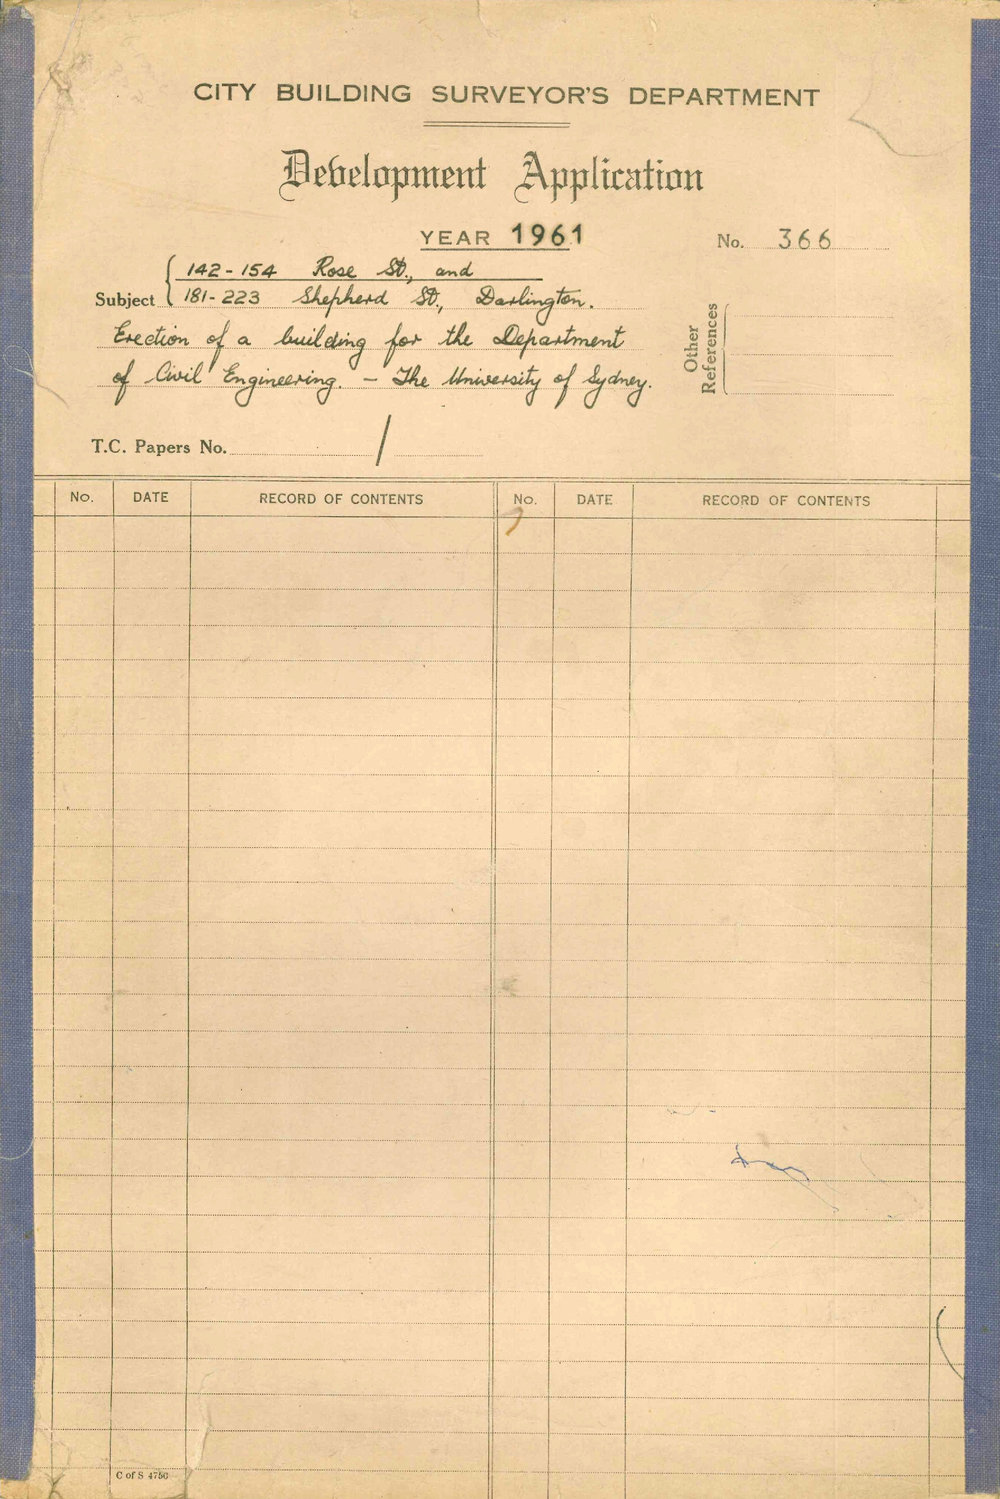 CITY BUILDING SURVEYOR'S DEPARTMENT
Development Application
YEAR 1961
No. 366
142-154 Rose St., and
Subject 181-223 Shepherd St., Darlington.
Erection of a building for the Department
of Civil Engineering. – The University of Sydney.
Other
References
T.C. Papers No. /
No. DATE RECORD OF CONTENTS No. DATE RECORD OF CONTENTS
C of S 4750